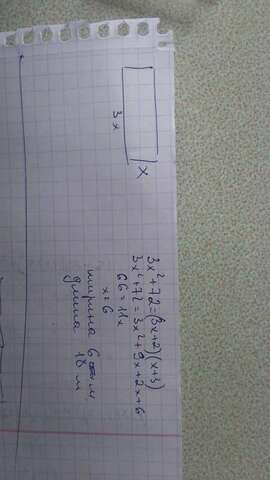 3x
x
3x²+72=(3x+2)(x+3)
3x²+72=3x²+9x+2x+6
66=11x
x=6
ширина 6 м
длина 18 м